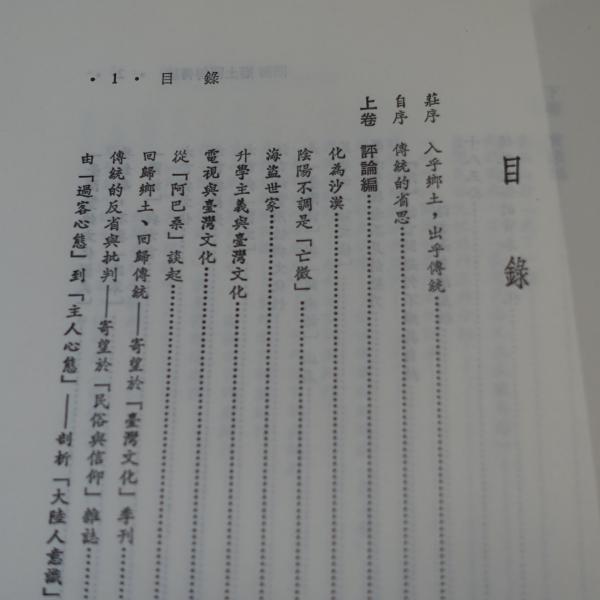 目錄
莊序 入乎鄉土，出乎傳統
自序 傳統的省思
上卷 評論編
化為沙漠
陰陽不調是「亡徵」
海盜世家
升學主義與臺灣文化
電視與臺灣文化
從「阿巴桑」談起
回歸鄉土、回歸傳統——寄望於「臺灣文化」季刊
傳統的反省與批判——寄望於「民俗與信仰」雜誌
由「過客心態」到「主人心態」——剖析「大陸人意識」
•1• 目錄